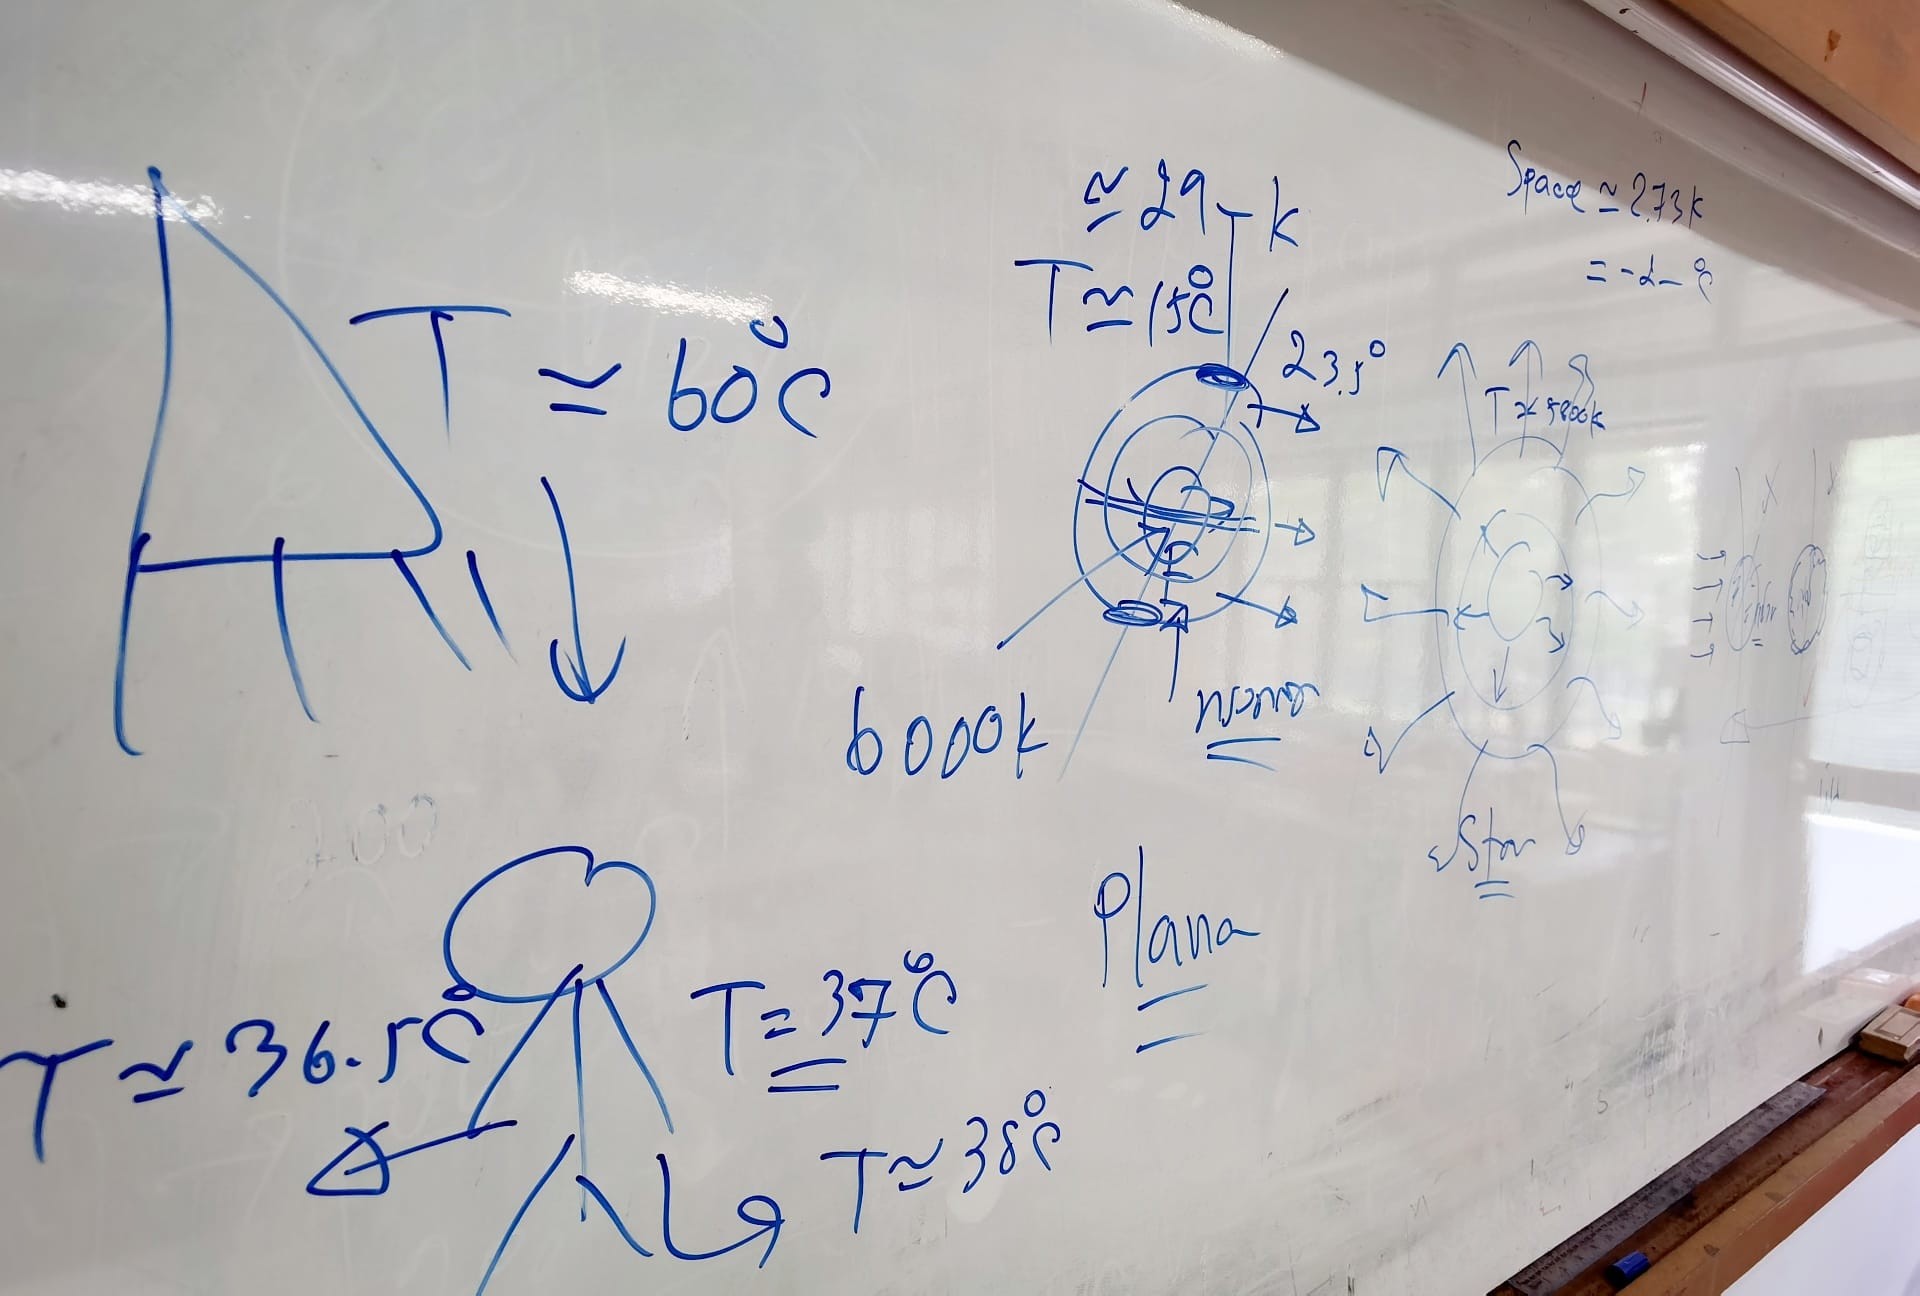 T ≃ 60°C
≃ 29- K
T ≃ 15°C
23.5°
6000K
Space ≃ 2.73K
= -2- °C
T ≃ 5800K
Star
Plana
T ≃ 36.5°C
T = 37°C
T ≃ 38°C